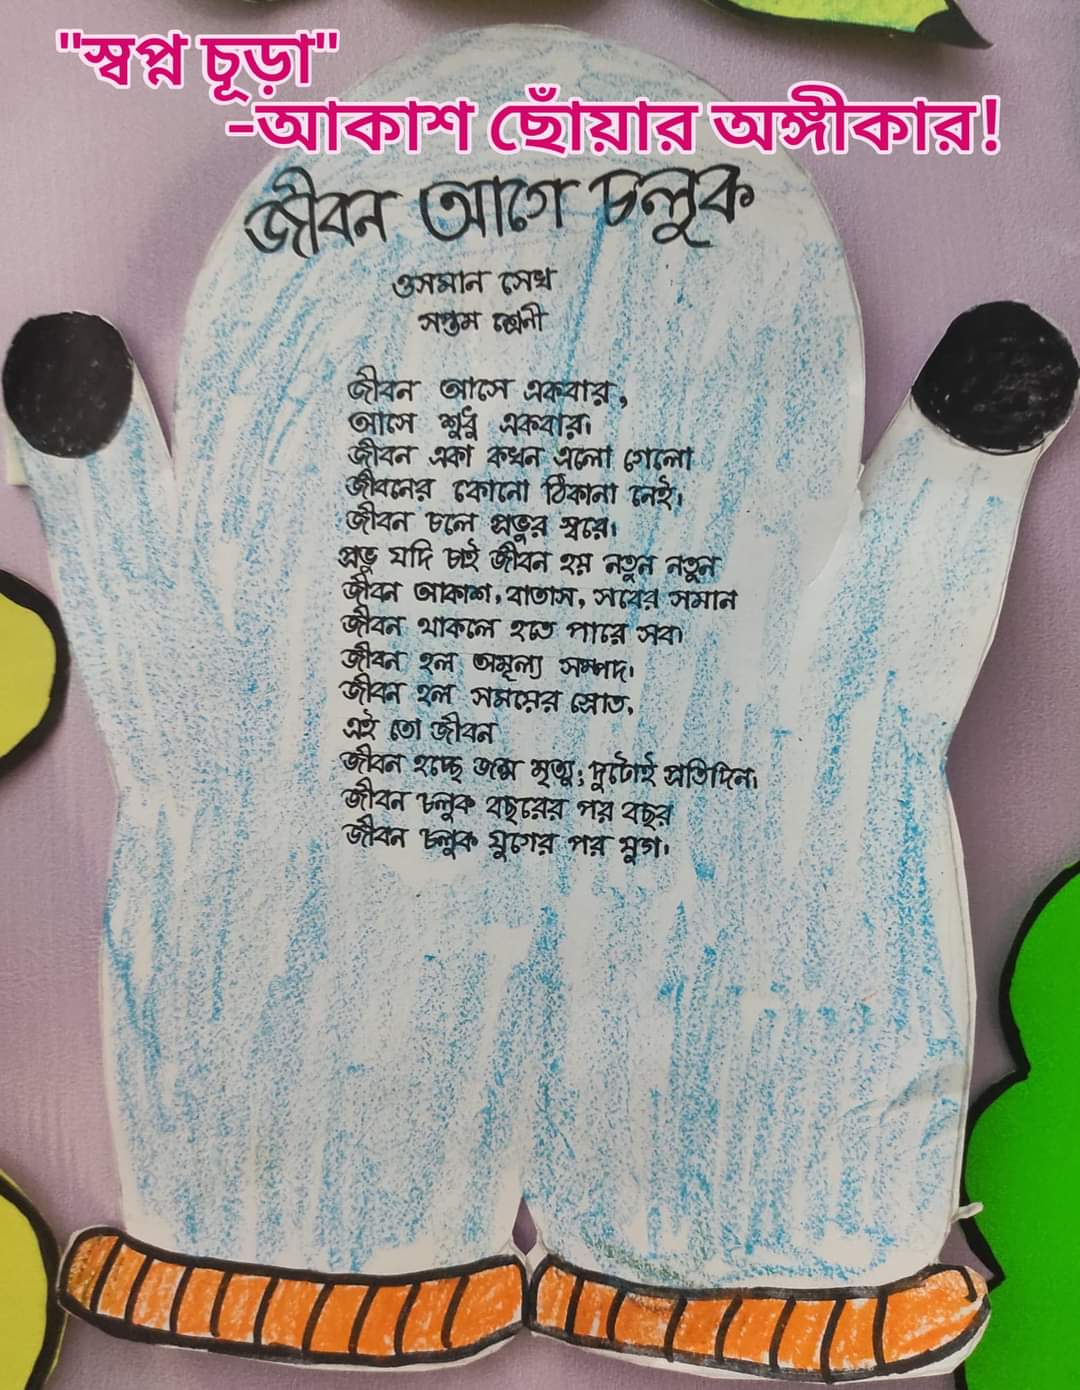 "স্বপ্ন চূড়া"
-আকাশ ছোঁয়ার অঙ্গীকার!
জীবন আগে চলুক
ওসমান সেখ
সপ্তম শ্রেনী
জীবন আসে একবার,
আসে শুধু একবার।
জীবন একা কখন এলো গেলো
জীবনের কোনো ঠিকানা নেই।
জীবন চলে প্রভুর স্বরে।
প্রভু যদি চাই জীবন হয় নতুন নতুন
জীবন আকাশ, বাতাস, সবের সমান
জীবন থাকলে হতে পারে সব।
জীবন হল অমূল্য সম্পদ।
জীবন হল সময়ের স্রোত,
এই তো জীবন
জীবন হচ্ছে জন্ম মৃত্যু; দুটোই প্রতিদিন।
জীবন চলুক বছরের পর বছর
জীবন চলুক যুগের পর যুগ।